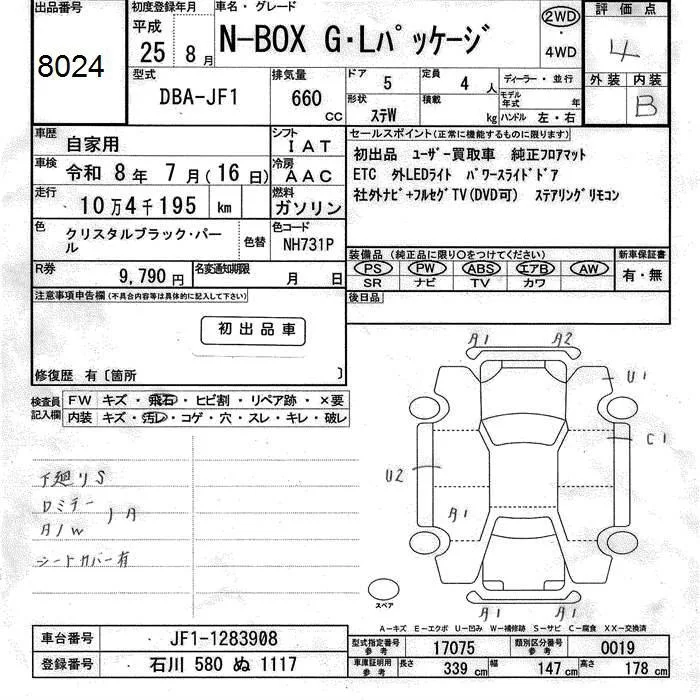 出品番号 初度登録年月 車名・グレード 2WD 評価点
8024 平成 25 8月 N-BOX G・Lパッケージ ・ 4WD 4
型式 排気量 ドア 定員 ディーラー・並行 外装 内装
DBA-JF1 660 CC 5 4人 モデル年式 年 B
形状 積載 ハンドル 左・右
ステW kg
車歴 自家用 シフト IAT セールスポイント(正常に機能するものに限ります)
車検 令和 8年 7月(16日) 冷房 AAC 初出品 ユーザー買取車 純正フロアマット
ETC 外LEDライト パワースライドドア
走行 10万4千195 km 燃料 ガソリン 社外ナビ+フルセグTV(DVD可) ステアリングリモコン
色 クリスタルブラック・パール 色替 色コード NH731P
装備品(純正品に限り○をつけてください) 新車保証書
PS PW ABS エアB AW 有・無
SR ナビ TV カワ
R券 9,790円 名変通知期限 月 日
後日品
注意事項申告欄(不具合内容等は具体的に記入して下さい)
初出品車
修復歴 有〔箇所 〕
検査員記入欄 FW キズ・飛石・ヒビ割・リペア跡・×要
内装 キズ・汚レ・コゲ・穴・スレ・キレ・破レ
A1 A2
U1
C1
U2
A1
下廻りS
ロミラー
Aノw
シートカバー有
A1 A1
スペア
A-キズ E-エクボ U-凹み W-補修跡 S-サビ C-腐食 XX-交換済
車台番号 JF1-1283908 型式指定番号 参考 17075 類別区分番号 参考 0019
登録番号 石川 580 ぬ 1117 車庫証明用 参考 長さ 339cm 幅 147cm 高さ 178cm